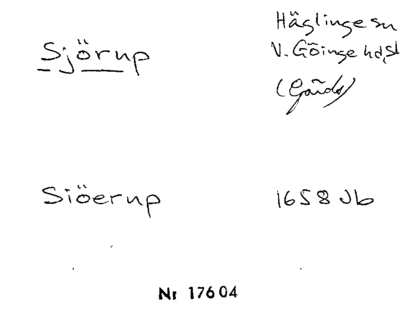 Sjörup
Häglinge sn
V. Göinge hd, Sk
(Gårds)
Siöerup
1658 Jb
Nr 17604